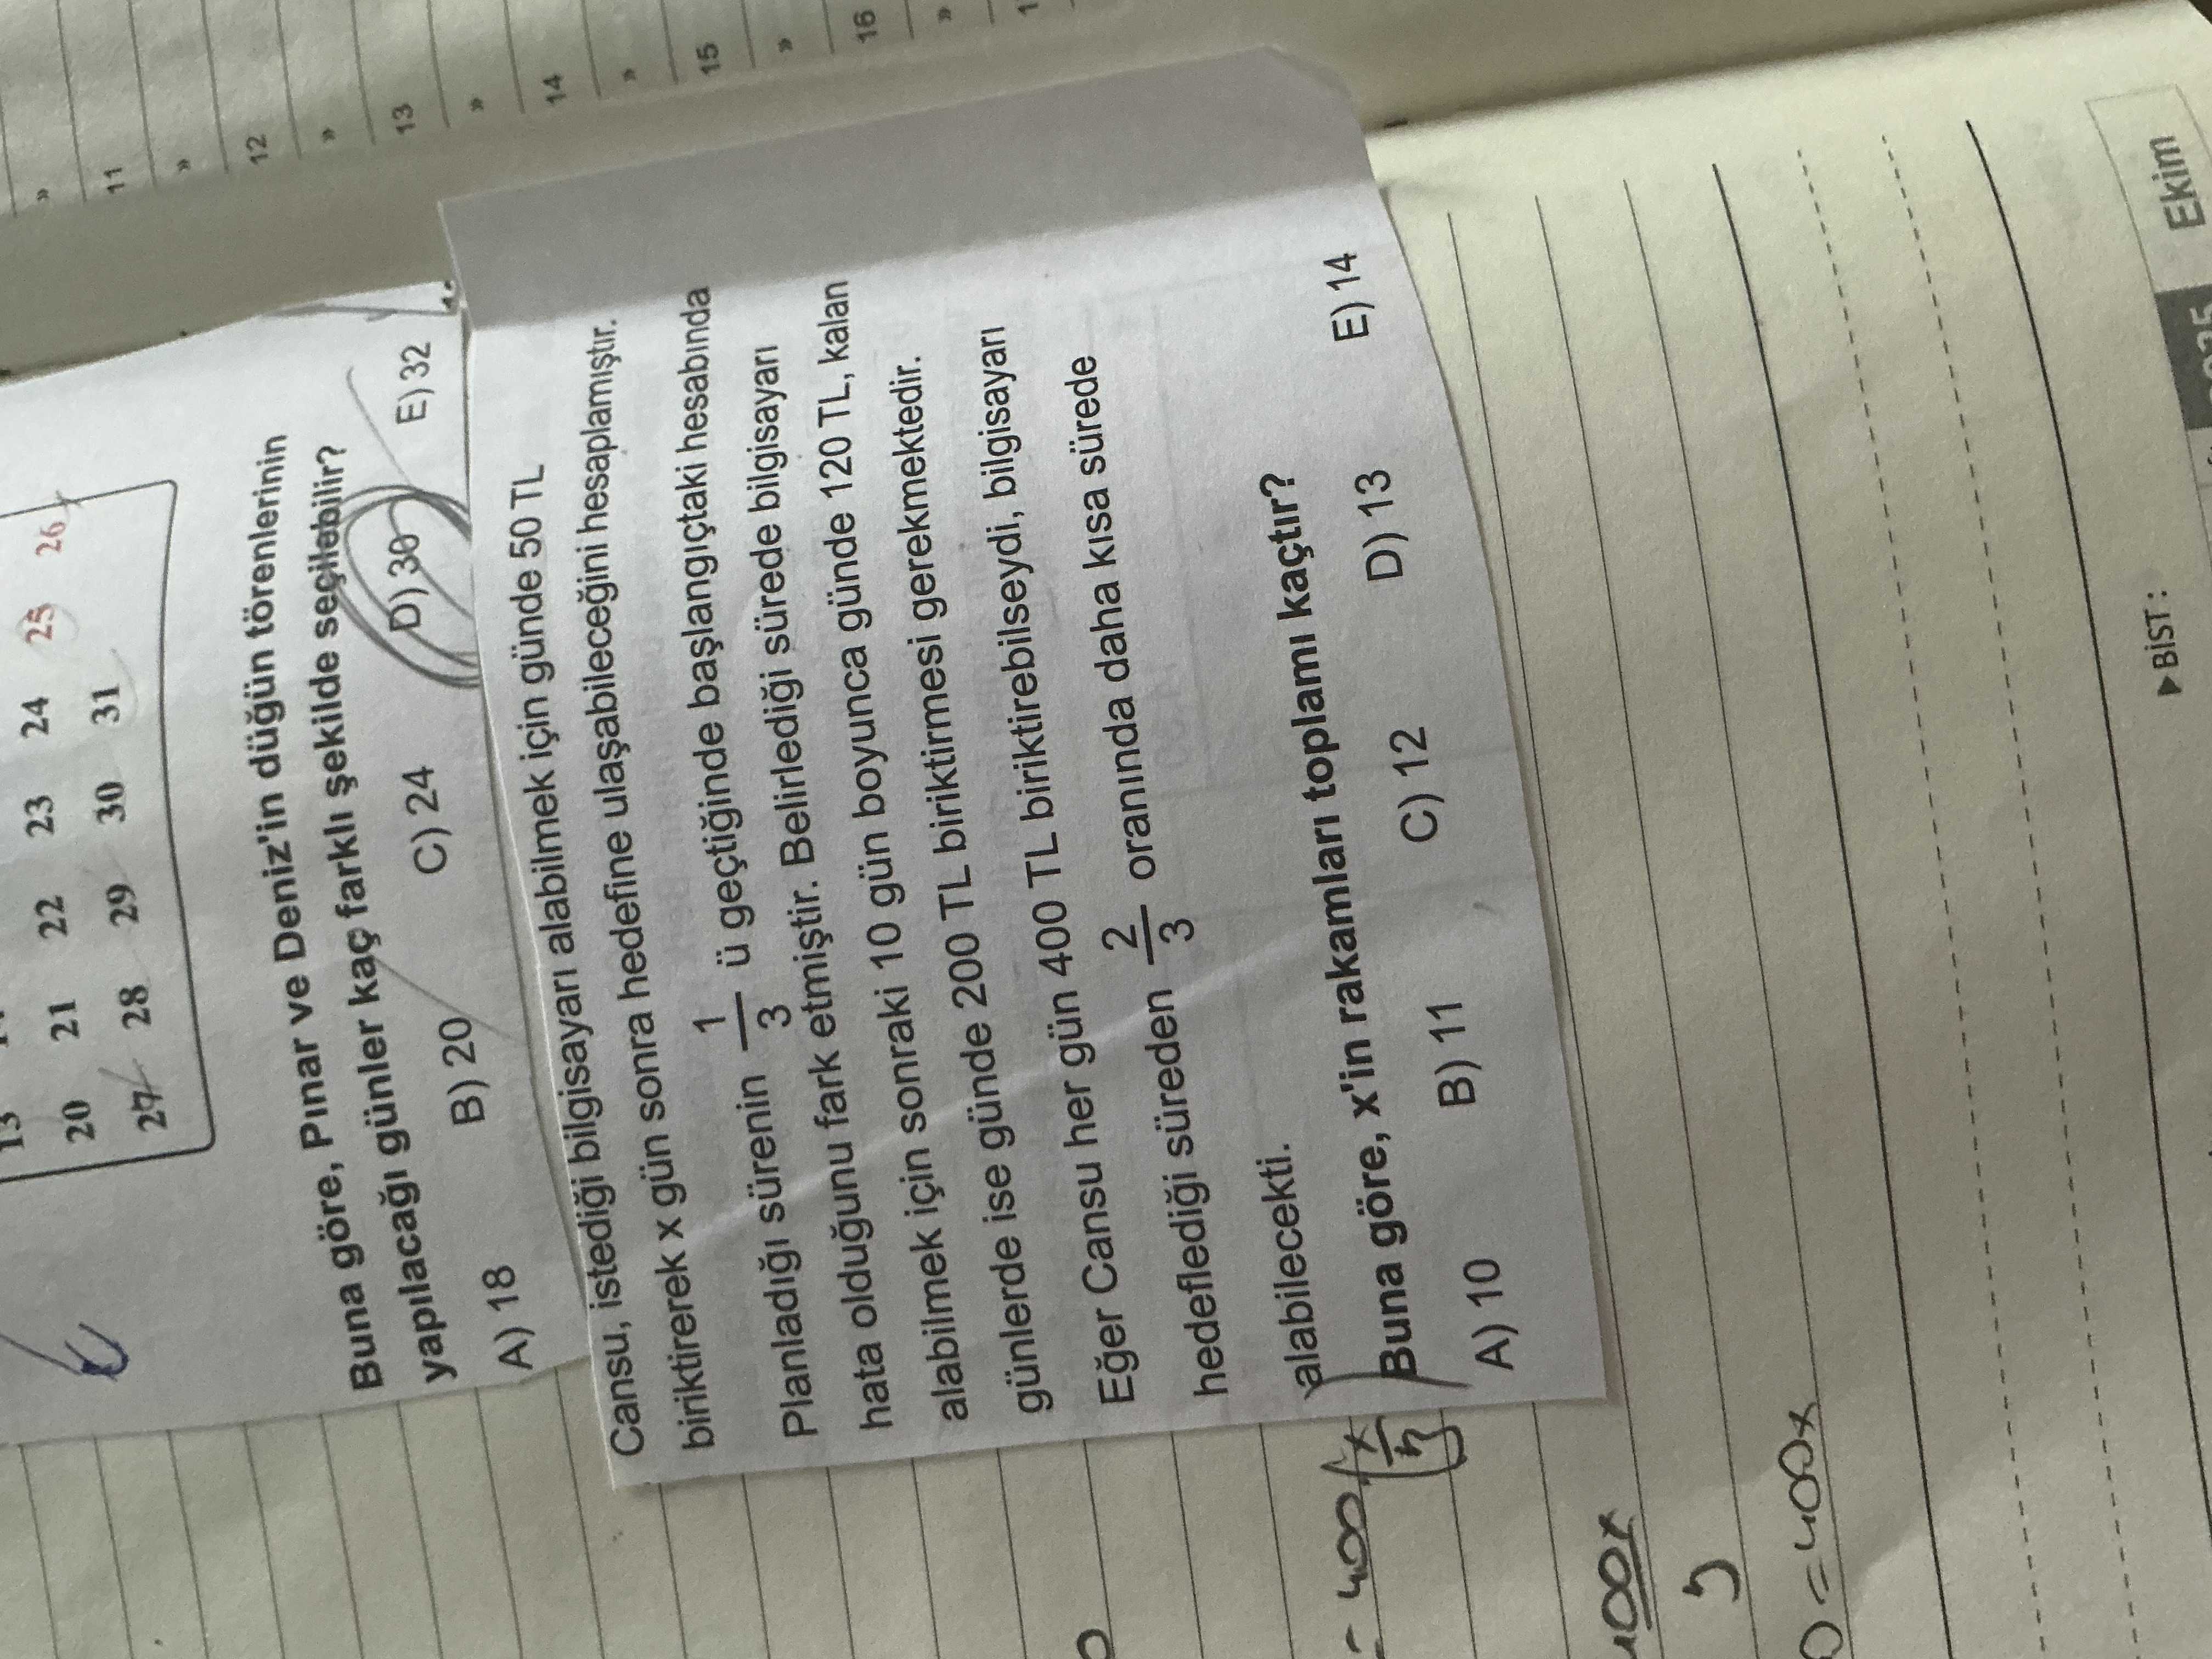 11
»
12
»
13
»
14
»
15
»
16
»
20 21 22 23 24 25 26
27 28 29 30 31
Buna göre, Pınar ve Deniz'in düğün törenlerinin
yapılacağı günler kaç farklı şekilde seçilebilir?
A) 18 B) 20 C) 24 D) 30 E) 32
Cansu, istediği bilgisayarı alabilmek için günde 50 TL
biriktirerek x gün sonra hedefine ulaşabileceğini hesaplamıştır.
Planladığı sürenin 1/3 ü geçtiğinde başlangıçtaki hesabında
hata olduğunu fark etmiştir. Belirlediği sürede bilgisayarı
alabilmek için sonraki 10 gün boyunca günde 120 TL, kalan
günlerde ise günde 200 TL biriktirmesi gerekmektedir.
Eğer Cansu her gün 400 TL biriktirebilseydi, bilgisayarı
hedeflediği süreden 2/3 oranında daha kısa sürede
alabilecekti.
Buna göre, x'in rakamları toplamı kaçtır?
A) 10 B) 11 C) 12 D) 13 E) 14
= 400
400x
= 400x
▶BİST:
Ekim